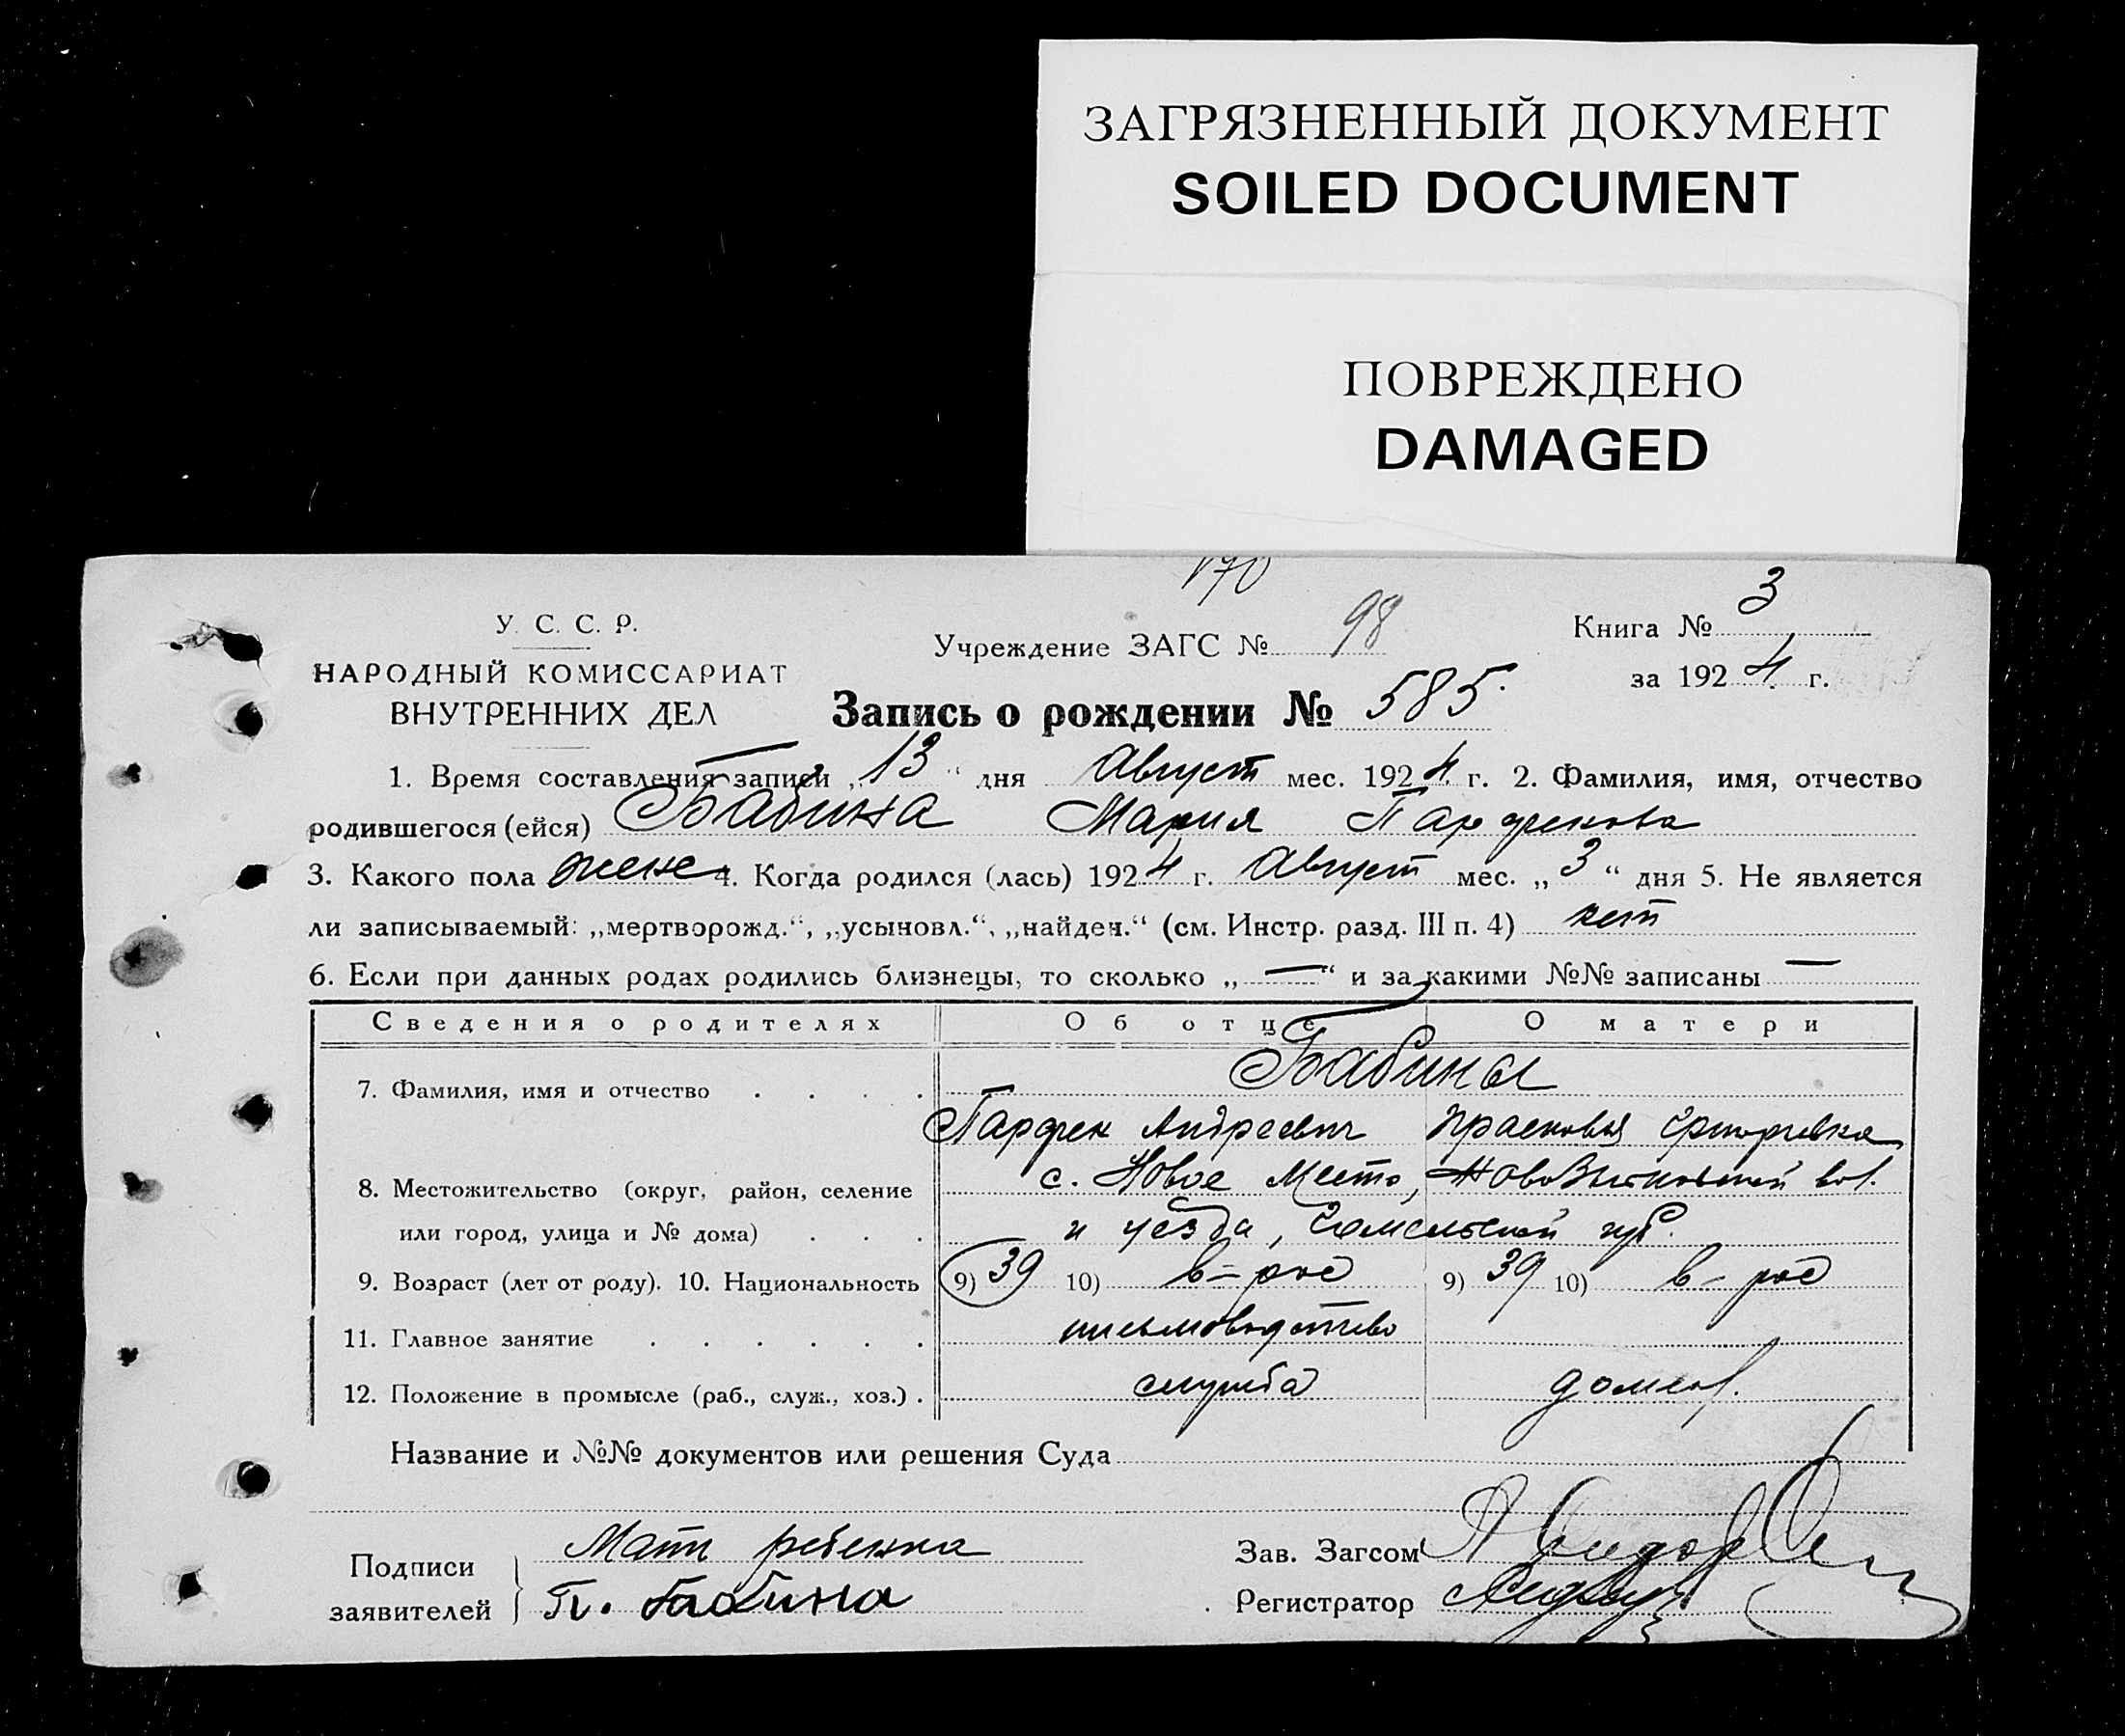 ЗАГРЯЗНЕННЫЙ ДОКУМЕНТ
SOILED DOCUMENT
ПОВРЕЖДЕНО
DAMAGED
170
У. С. С. Р.
НАРОДНЫЙ КОМИССАРИАТ
ВНУТРЕННИХ ДЕЛ
Учреждение ЗАГС № 98
Книга № 3
за 1924 г.
Запись о рождении № 585.
1. Время составления записи „13“ дня Август мес. 1924 г. 2. Фамилия, имя, отчество
родившегося (ейся) Бабина Мария Парфенова
3. Какого пола жене 4. Когда родился (лась) 1924 г. Август мес. „3“ дня 5. Не является
ли записываемый: „мертворожд.“, „усыновл.“, „найден.“ (см. Инстр. разд. III п. 4) нет
6. Если при данных родах родились близнецы, то сколько „—“ и за какими №№ записаны —
Сведения о родителях Об отце О матери
7. Фамилия, имя и отчество . . . . Бабины
Парфен Андреевич Прасковья Григорьевна
8. Местожительство (округ, район, селение с. Новое Место, Новозыбковской вол.
или город, улица и № дома) . . . и уезда, Гомельской губ.
9. Возраст (лет от роду). 10. Национальность 9) 39 10) в-рос 9) 39 10) в-рос
11. Главное занятие . . . . . . письмоводство
12. Положение в промысле (раб., служ., хоз.) . служба домох.
Название и №№ документов или решения Суда
Подписи заявителей } Мать ребенка
П. Бабина
Зав. Загсом
Регистратор